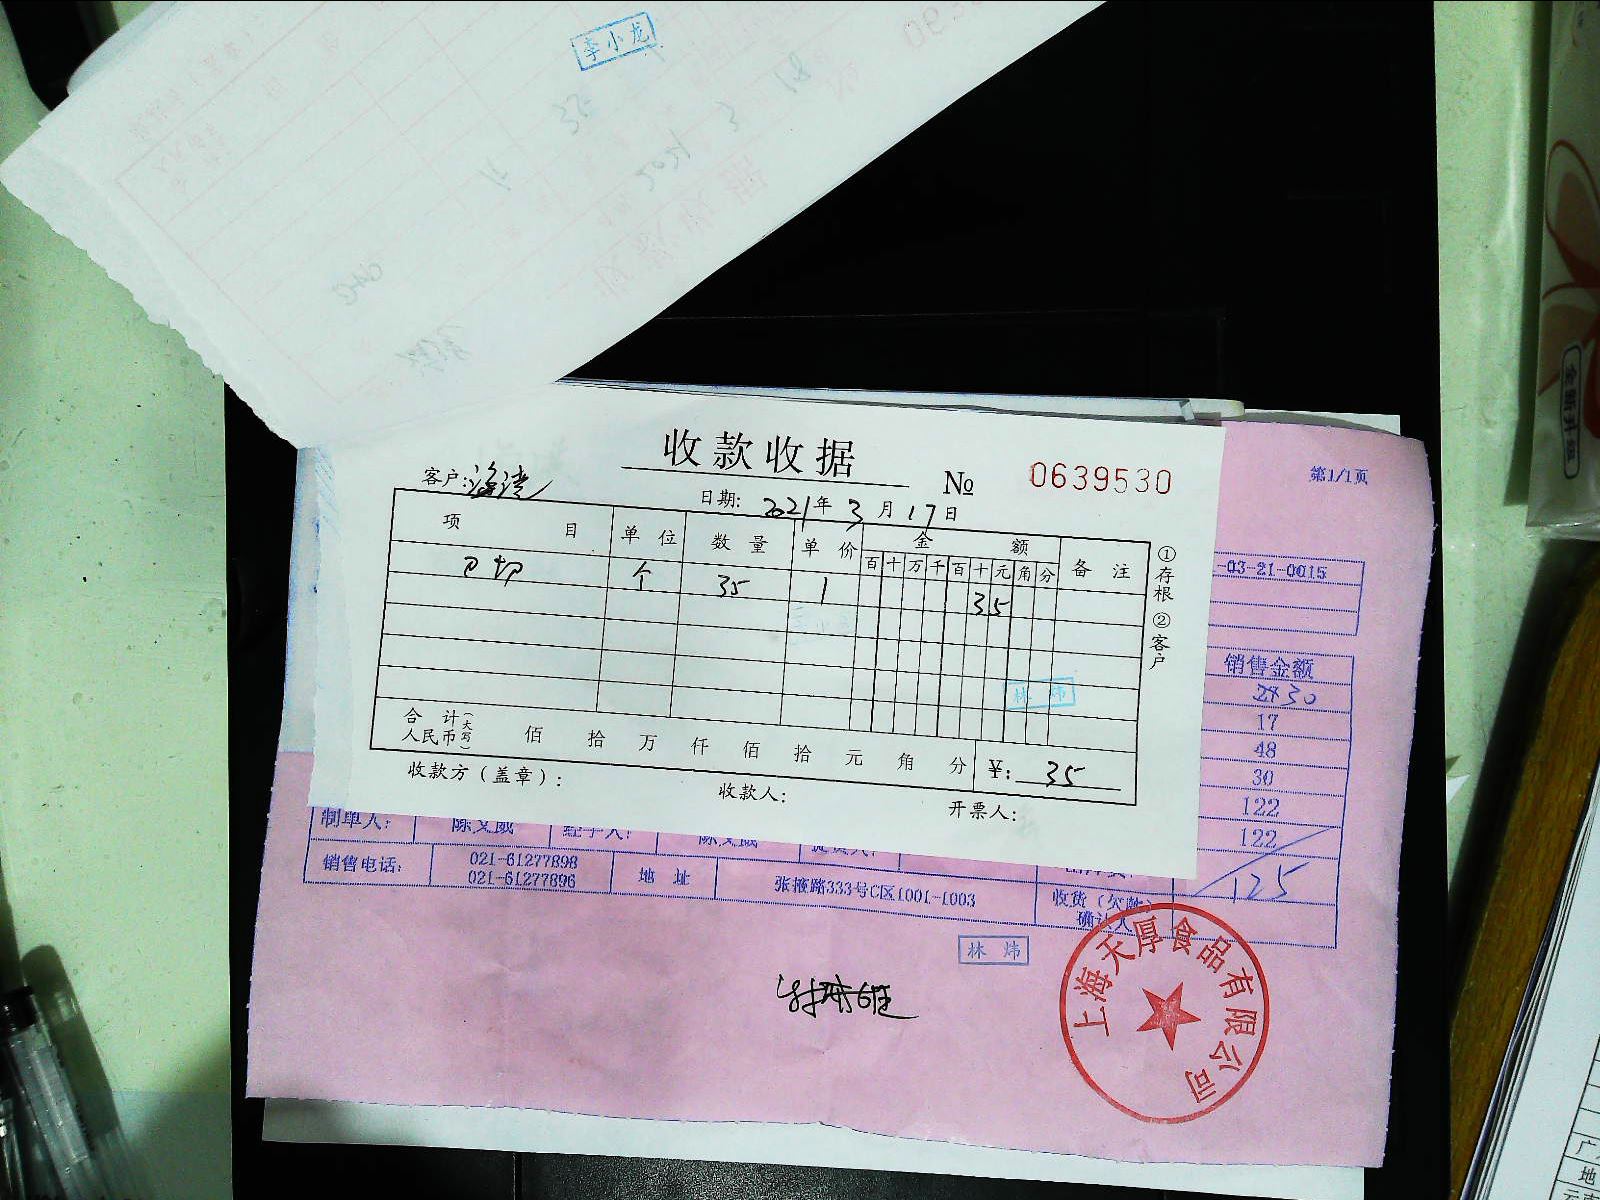 李小龙
收款收据
№ 0639530
客户:
日期: 2021年3月17日
项目 单位 数量 单价 金额 备注
百十万千百十元角分
个 35 1 35
林炜
合计(大写)
人民币
佰 拾 万 仟 佰 拾 元 角 分 ¥: 35
收款方(盖章): 收款人: 开票人:
①存根 ②客户
第1/1页
-03-21-0015
销售金额
30
17
48
30
122
122
125
制单人: 陈文威 经手人: 陈文威
销售电话: 021-61277898
021-61277896
地址 张掖路333号C区1001-1003
收货(欠款)
确认人
林炜
上海天厚食品有限公司